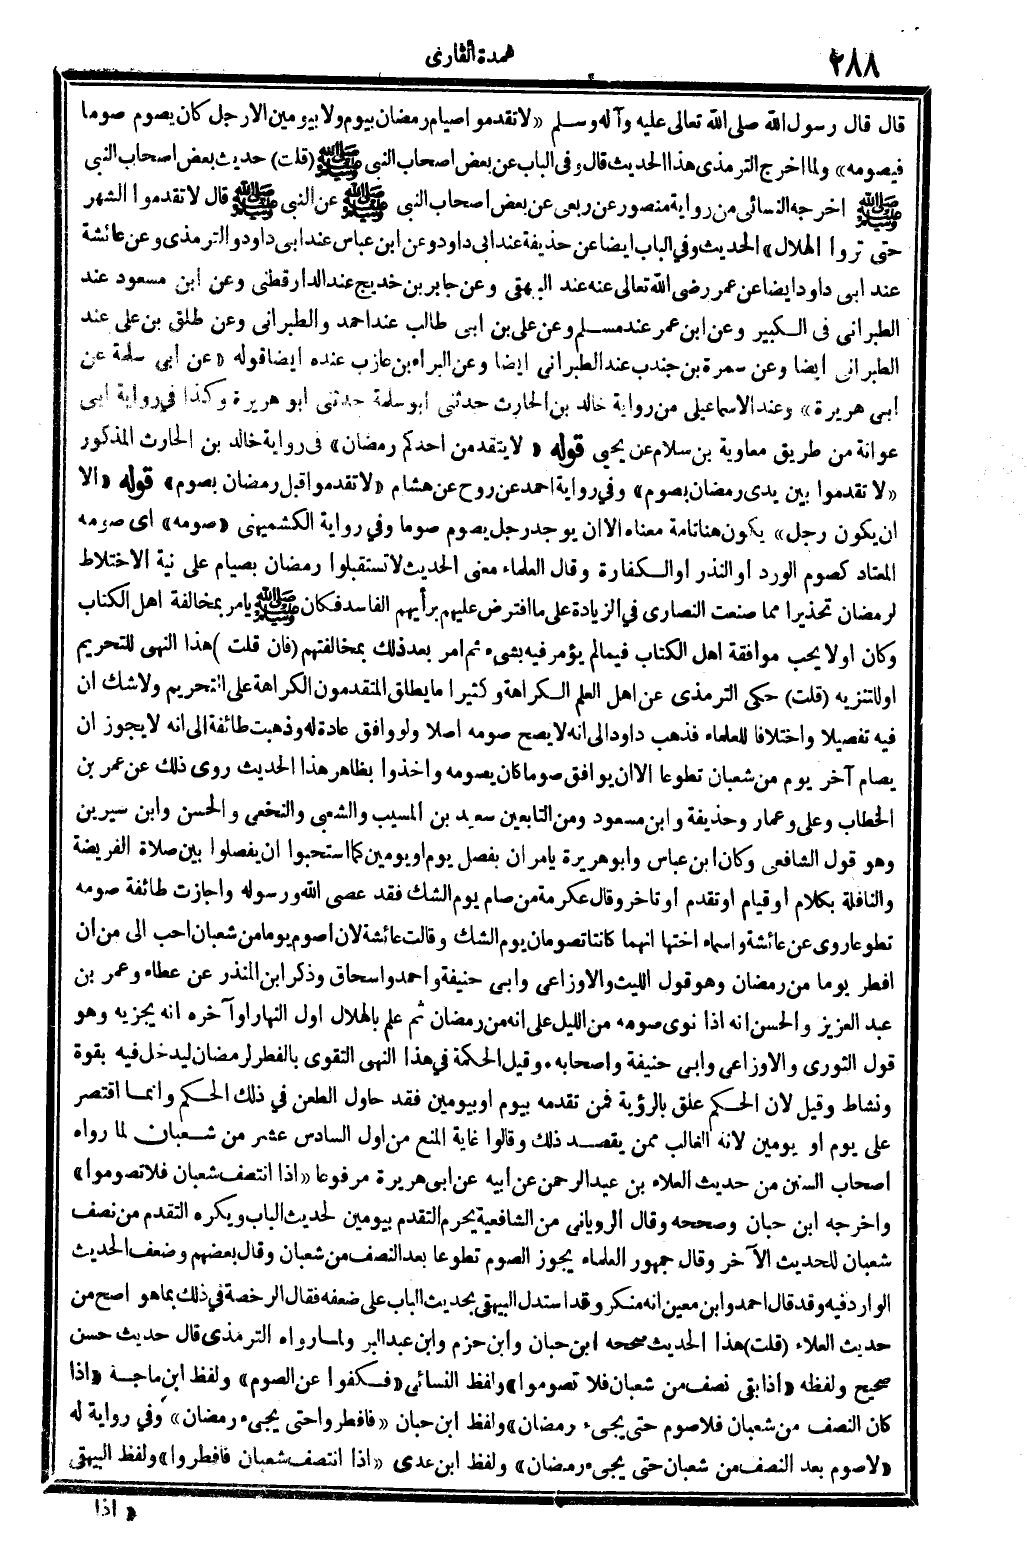 ٢٨٨
عمدة القارئ
قال قال رسول الله صلى الله تعالى عليه وآله وسلم «لا تقدموا صيام رمضان بيوم ولا بيومين الا رجل كان يصوم صوما
فيصومه» ولما اخرج الترمذى هذا الحديث قال وفى الباب عن بعض اصحاب النبى ﷺ (قلت) حديث بعض اصحاب النبى
ﷺ اخرجه النسائى من رواية منصور عن ربعى عن بعض اصحاب النبى ﷺ عن النبى ﷺ قال لا تقدموا الشهر
حتى تروا الهلال» الحديث وفي الباب ايضا عن حذيفة عند ابى داود وعن ابن عباس عند ابى داود والترمذى وعن عائشة
عند ابى داود ايضا عن عمر رضى الله تعالى عنه عند البيهقى وعن جابر بن خديج عند الدارقطنى وعن ابن مسعود عند
الطبرانى فى الكبير وعن ابن عمر عند مسلم وعن على بن ابى طالب عند احمد والطبرانى وعن طلق بن على عند
الطبرانى ايضا وعن سمرة بن جندب عند الطبرانى ايضا وعن البراء بن عازب عنده ايضا قوله «عن أبي سلمة عن
ابى هريرة» وعند الاسماعيلى من رواية خالد بن الحارث حدثنى ابو سلمة حدثنى ابو هريرة وكذا في رواية ابى
عوانة من طريق معاوية بن سلام عن يحيى قوله «لا يتقدمن احدكم رمضان» فى رواية خالد بن الحارث المذكور
«لا تقدموا بين يدى رمضان بصوم» وفي رواية احمد عن روح عن هشام «لا تقدموا قبل رمضان بصوم» قوله «الا
ان يكون رجل» يكون هنا تامة معناه الا ان يوجد رجل يصوم صوما وفي رواية الكشميهنى «صومه» اى صومه
المعتاد كصوم الورد او النذر او الكفارة وقال العلماء معنى الحديث لا تستقبلوا رمضان بصيام على نية الاختلاط
لرمضان تحذيرا مما صنعت النصارى في الزيادة على ما افترض عليهم برأيهم الفاسد فكان ﷺ يامر بمخالفة اهل الكتاب
وكان اولا يحب موافقة اهل الكتاب فيما لم يؤمر فيه بشىء ثم امر بعد ذلك بمخالفتهم (فان قلت) هذا النهى للتحريم
او للتنزيه (قلت) حكى الترمذى عن اهل العلم الكراهة وكثيرا ما يطلق المتقدمون الكراهة على التحريم ولا شك ان
فيه تفصيلا واختلافا للعلماء فذهب داود الى انه لا يصح صومه اصلا ولو وافق عادة له وذهبت طائفة الى انه لا يجوز ان
يصام آخر يوم من شعبان تطوعا الا ان يوافق صوما كان يصومه واخذوا بظاهر هذا الحديث روى ذلك عن عمر بن
الخطاب وعلى وعمار وحذيفة وابن مسعود ومن التابعين سعيد بن المسيب والشعبى والنخعى والحسن وابن سيرين
وهو قول الشافعى وكان ابن عباس وابو هريرة يامران بفصل يوم او يومين كما استحبوا ان يفصلوا بين صلاة الفريضة
والنافلة بكلام او قيام او تقدم او تاخر وقال عكرمة من صام يوم الشك فقد عصى الله ورسوله واجازت طائفة صومه
تطوعا روى عن عائشة واسماء اختها انهما كانتا تصومان يوم الشك وقالت عائشة لان اصوم يوما من شعبان احب الى من ان
افطر يوما من رمضان وهو قول الليث والاوزاعى وابى حنيفة واحمد واسحاق وذكر ابن المنذر عن عطاء وعمر بن
عبد العزيز والحسن انه اذا نوى صومه من الليل على انه من رمضان ثم علم بالهلال اول النهار او آخره انه يجزيه وهو
قول الثورى والاوزاعى وابى حنيفة واصحابه. وقيل الحكمة في هذا النهى التقوى بالفطر لرمضان ليدخل فيه بقوة
ونشاط وقيل لان الحكم علق بالرؤية فمن تقدمه بيوم او بيومين فقد حاول الطعن في ذلك الحكم وانما اقتصر
على يوم او يومين لانه الغالب ممن يقصد ذلك وقالوا غاية المنع من اول السادس عشر من شعبان لما رواه
اصحاب السنن من حديث العلاء بن عبد الرحمن عن ابيه عن ابى هريرة مرفوعا «اذا انتصف شعبان فلا تصوموا»
واخرجه ابن حبان وصححه وقال الرويانى من الشافعية يحرم التقدم بيومين لحديث الباب ويكره التقدم من نصف
شعبان للحديث الآخر وقال جمهور العلماء يجوز الصوم تطوعا بعد النصف من شعبان وقال بعضهم وضعف الحديث
الوارد فيه وقد قال احمد وابن معين انه منكر وقد استدل البيهقى بحديث الباب على ضعفه فقال الرخصة في ذلك بما هو اصح من
حديث العلاء (قلت) هذا الحديث صححه ابن حبان وابن حزم وابن عبد البر ولما رواه الترمذى قال حديث حسن
صحيح ولفظه «اذا بقى نصف من شعبان فلا تصوموا» ولفظ النسائى «فكفوا عن الصوم» ولفظ ابن ماجة «اذا
كان النصف من شعبان فلا صوم حتى يجىء رمضان» ولفظ ابن حبان «فافطروا حتى يجىء رمضان» وفي رواية له
«لا صوم بعد النصف من شعبان حتى يجىء رمضان» ولفظ ابن عدى «اذا انتصف شعبان فافطروا» ولفظ البيهقى
«اذا